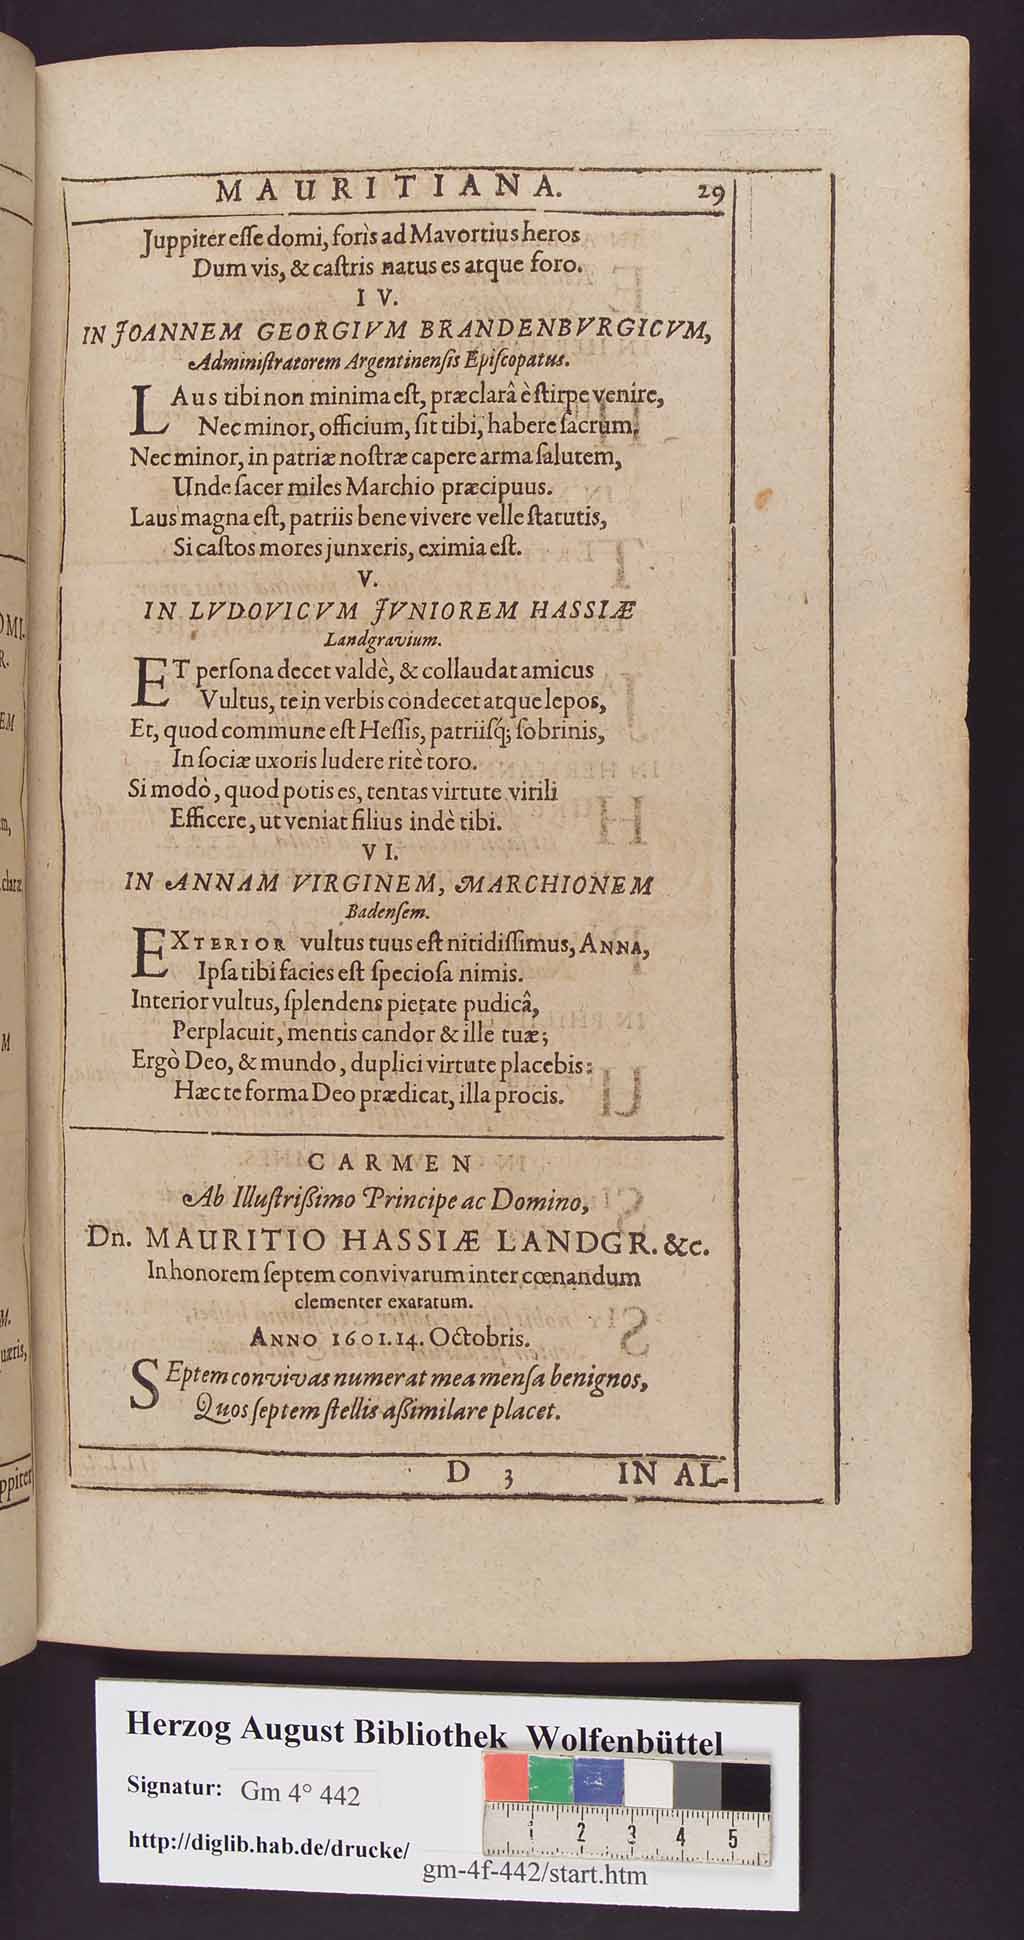 MAURITIANA. 29
Juppiter esse domi, forìs ad Mavortius heros
Dum vis, & castris natus es atque foro.
IV.
IN JOANNEM GEORGIVM BRANDENBVRGICVM,
Administratorem Argentinensis Episcopatus.
LAus tibi non minima est, præclarâ è stirpe venire,
Nec minor, officium, sit tibi, habere sacrum.
Nec minor, in patriæ nostræ capere arma salutem,
Unde sacer miles Marchio præcipuus.
Laus magna est, patriis bene vivere velle statutis,
Si castos mores junxeris, eximia est.
V.
IN LVDOVICVM JVNIOREM HASSIÆ
Landgravium.
ET persona decet valdè, & collaudat amicus
Vultus, te in verbis condecet atque lepos,
Et, quod commune est Hessis, patriisq́; sobrinis,
In sociæ uxoris ludere ritè toro.
Si modò, quod potis es, tentas virtute virili
Efficere, ut veniat filius indè tibi.
VI.
IN ANNAM VIRGINEM, MARCHIONEM
Badensem.
EXTERIOR vultus tuus est nitidissimus, ANNA,
Ipsa tibi facies est speciosa nimis.
Interior vultus, splendens pietate pudicâ,
Perplacuit, mentis candor & ille tuæ;
Ergò Deo, & mundo, duplici virtute placebis:
Hæc te forma Deo prædicat, illa procis.
CARMEN
Ab Illustrißimo Principe ac Domino,
Dn. MAURITIO HASSIÆ LANDGR. &c.
In honorem septem convivarum inter cœnandum
clementer exaratum.
ANNO 1601. 14. Octobris.
SEptem convivas numerat mea mensa benignos,
Quos septem stellis aßimilare placet.
D 3 IN AL-
OMI.
R.
EM
m,
claræ
M
M.
uæris,
ppiter
Herzog August Bibliothek Wolfenbüttel
Signatur: Gm 4° 442
http://diglib.hab.de/drucke/
gm-4f-442/start.htm
1 2 3 4 5